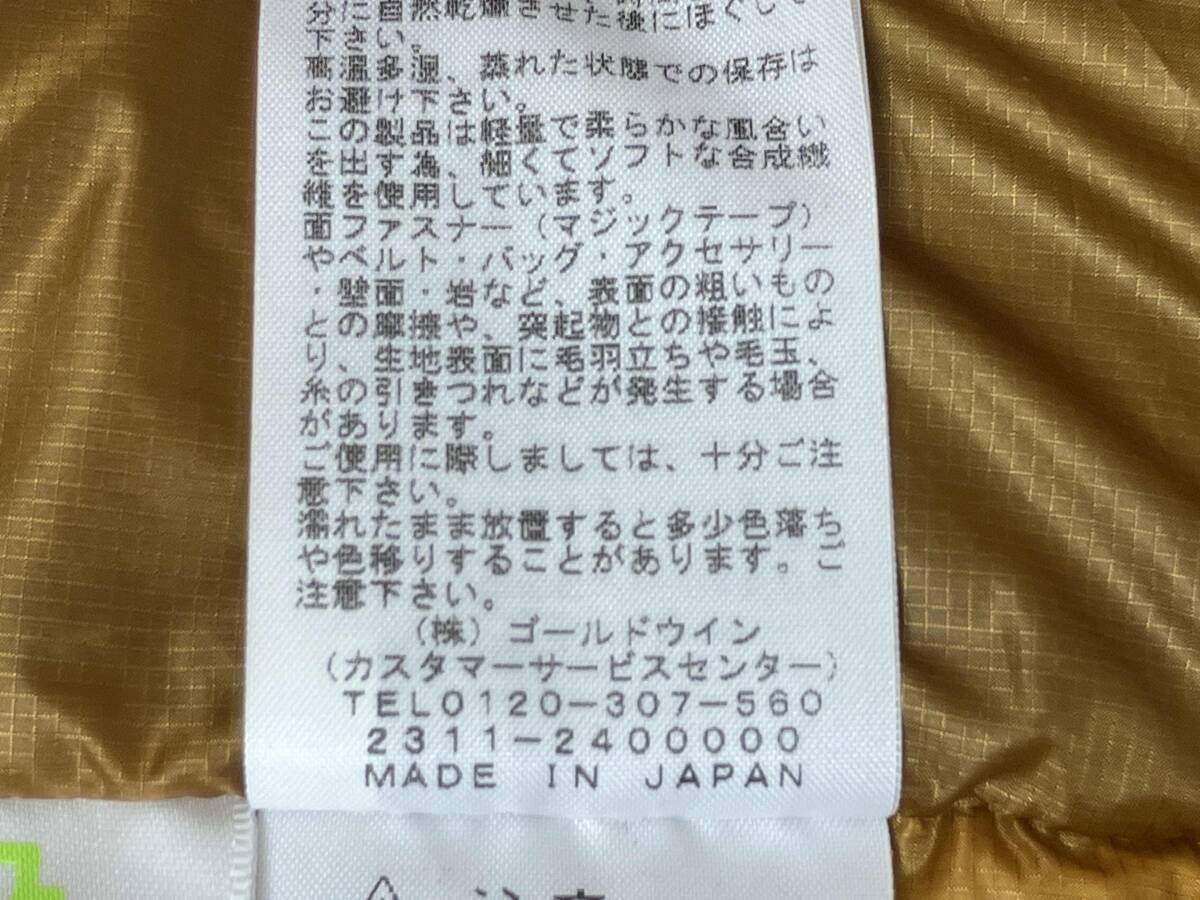 分に自然乾燥させた後にほぐして
下さい。
高温多湿、蒸れた状態での保存は
お避け下さい。
この製品は軽量で柔らかな風合い
を出す為、細くてソフトな合成繊
維を使用しています。
面ファスナー(マジックテープ)
やベルト・バッグ・アクセサリー
・壁面・岩など、表面の粗いもの
との摩擦や、突起物との接触によ
り、生地表面に毛羽立ちや毛玉、
糸の引きつれなどが発生する場合
があります。
ご使用に際しましては、十分ご注
意下さい。
濡れたまま放置すると多少色落ち
や色移りすることがあります。ご
注意下さい。
(株)ゴールドウイン
(カスタマーサービスセンター)
TEL0120-307-560
2311-2400000
MADE IN JAPAN